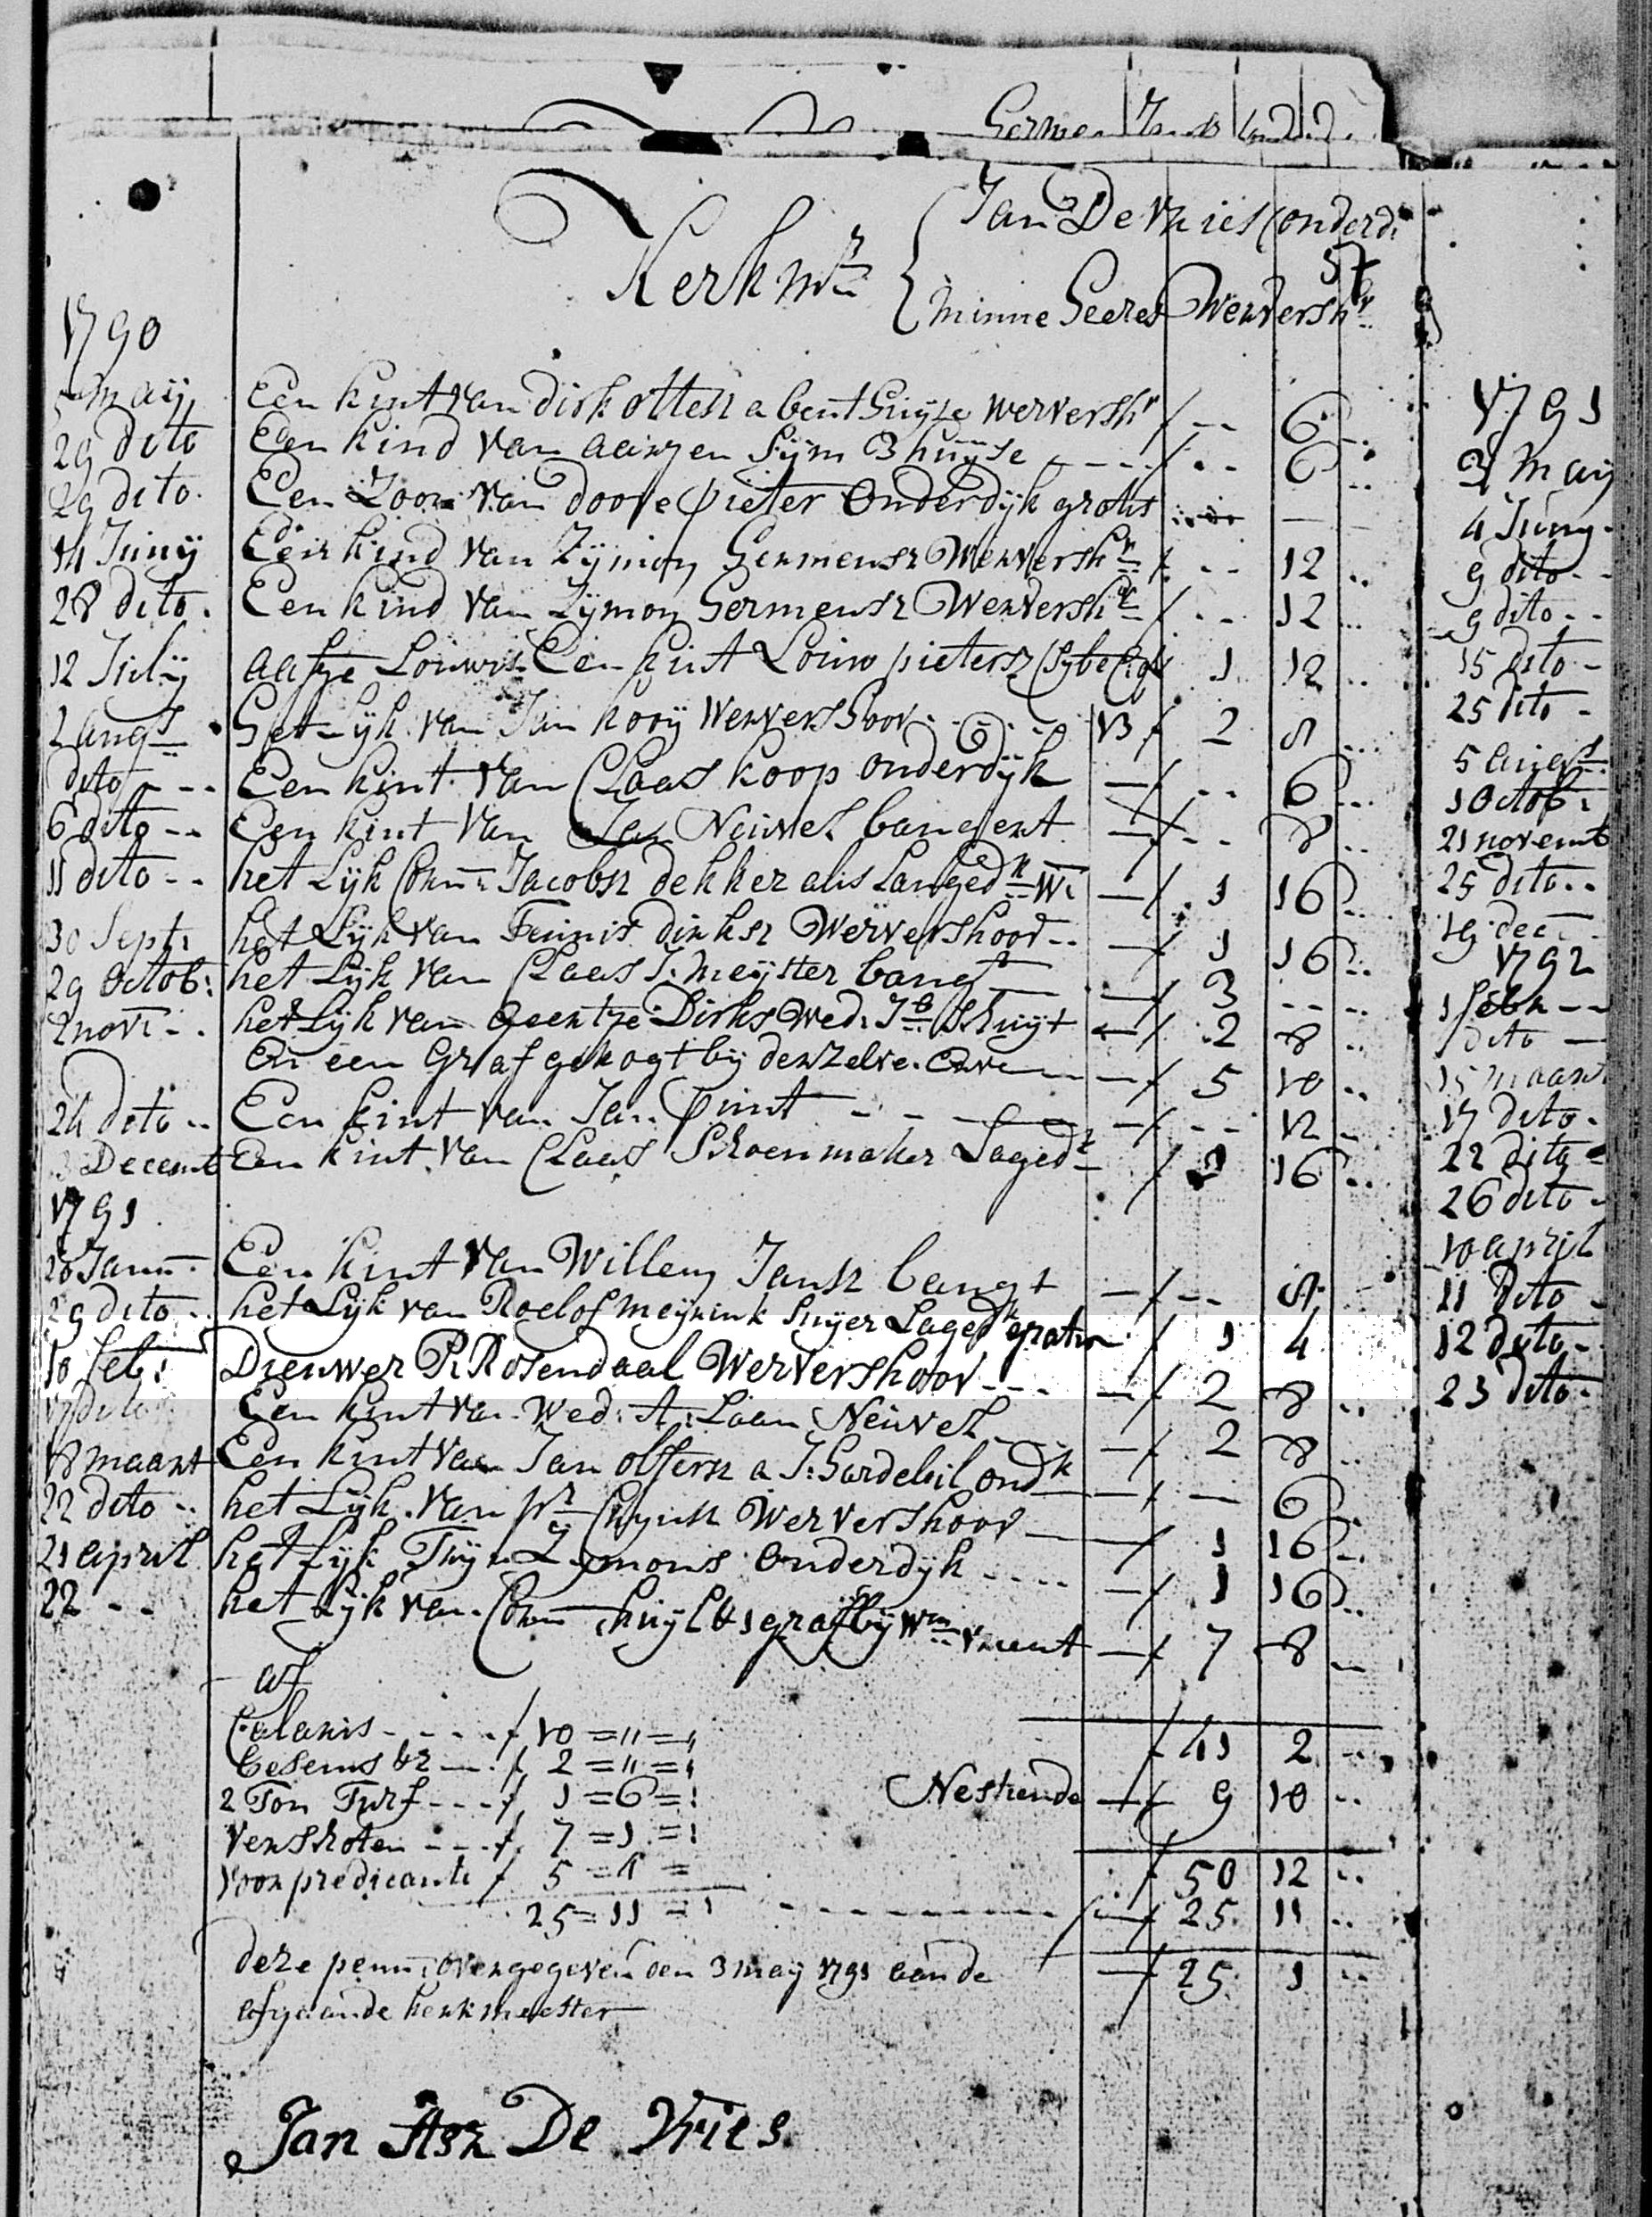 Kerkmrs
Jan De Vries Onderd:
57
Minne Seeres Wervershr
1790
maij Een kint van dirk otten a bent Huijse wervershr / -- 6
29 dito Een kind van aarzen Sijm Bhuijse / -- 6 --
29 dito Een Zoon van doove pieter Onderdijk gratis
14 Junij Een kind van Zijmon Sermensz Wervershr / -- 12 --
28 dito Een kind van Zijmon Sermensz Wervershr / -- 12 --
12 Julij aafije Louwis Een kint Louw pietersz 1 12 --
2 augs Het Lijk van Jan Kooij Wervershoov 2 8 --
dito -- Een kint van Claas Koop onderdijk / -- 6 --
6 dito -- Een kint van Jan Neuvel bangert / -- 8 --
11 dito -- het Lijk Corn: Jacobsz dekker alis Langedk W: / 1 16 --
30 Sept: het Lijk van Teunis dirksz Wervershoov -- / 1 16 --
29 Octob: het Lijk van Claas J: Meijster bangt / 3 -- --
2 nov: -- het Lijk van Geertje Dirks Wed: Jb Schuijt / 2 8 --
En een Graf gekogt bij denzelve / 5 10 --
24 dito -- Een kint van Jan Pimt / -- 12 --
Decemb Een kint van Claas Schoenmaker Laged / 1 16 --
1791
20 Janu Een kint van Willem Jansz bangt / -- 8
29 dito -- het Lijk van Roelof Meijnink Huijer Lagedk gratis / 1 4
10 feb: Dieuwer P: Rosendaal Wervershoov -- / 2 8 --
17 dito Een kint van Wed: A: Laan Neuvel / 2 8 --
18 maart Een kint van Jan olfersz a J: Sardebil ondk / -- 6
22 dito -- het Lijk van Pr Crijnsz Wervershoov / 1 16 --
21 april het Lijk Thijs Zijmons Onderdijk -- / 1 16 --
22 -- het Lijk van Corn: Schuijt & 1 graf bij Wm vreent / 7 8 --
af
Salaris ---- f 10 = " = "
besems &z -- f 2 = " = "
2 Ton Turf --- f 1 = 6 = :
Verschoten --- f 7 = 5 = :
voor predicants f 5 = " =
25 = 11 = "
/ 41 2 --
Nestende / 9 10 --
f 50 12 --
f 25 11 --
f 25 1 --
deze penn: overgegeven den 3 maij 1791 aan de
afgaande kerkmeester
Jan Asz De Vries
1791
3 Maij
4 Junij
9 dito --
9 dito --
15 dito -
25 dito -
5 augst
1 Octob:
21 novemb
25 dito --
19 dec
1792
1 febr --
1 dito --
15 maart
17 dito -
22 dito -
26 dito -
10 april
11 dito -
12 dito -
23 dito -